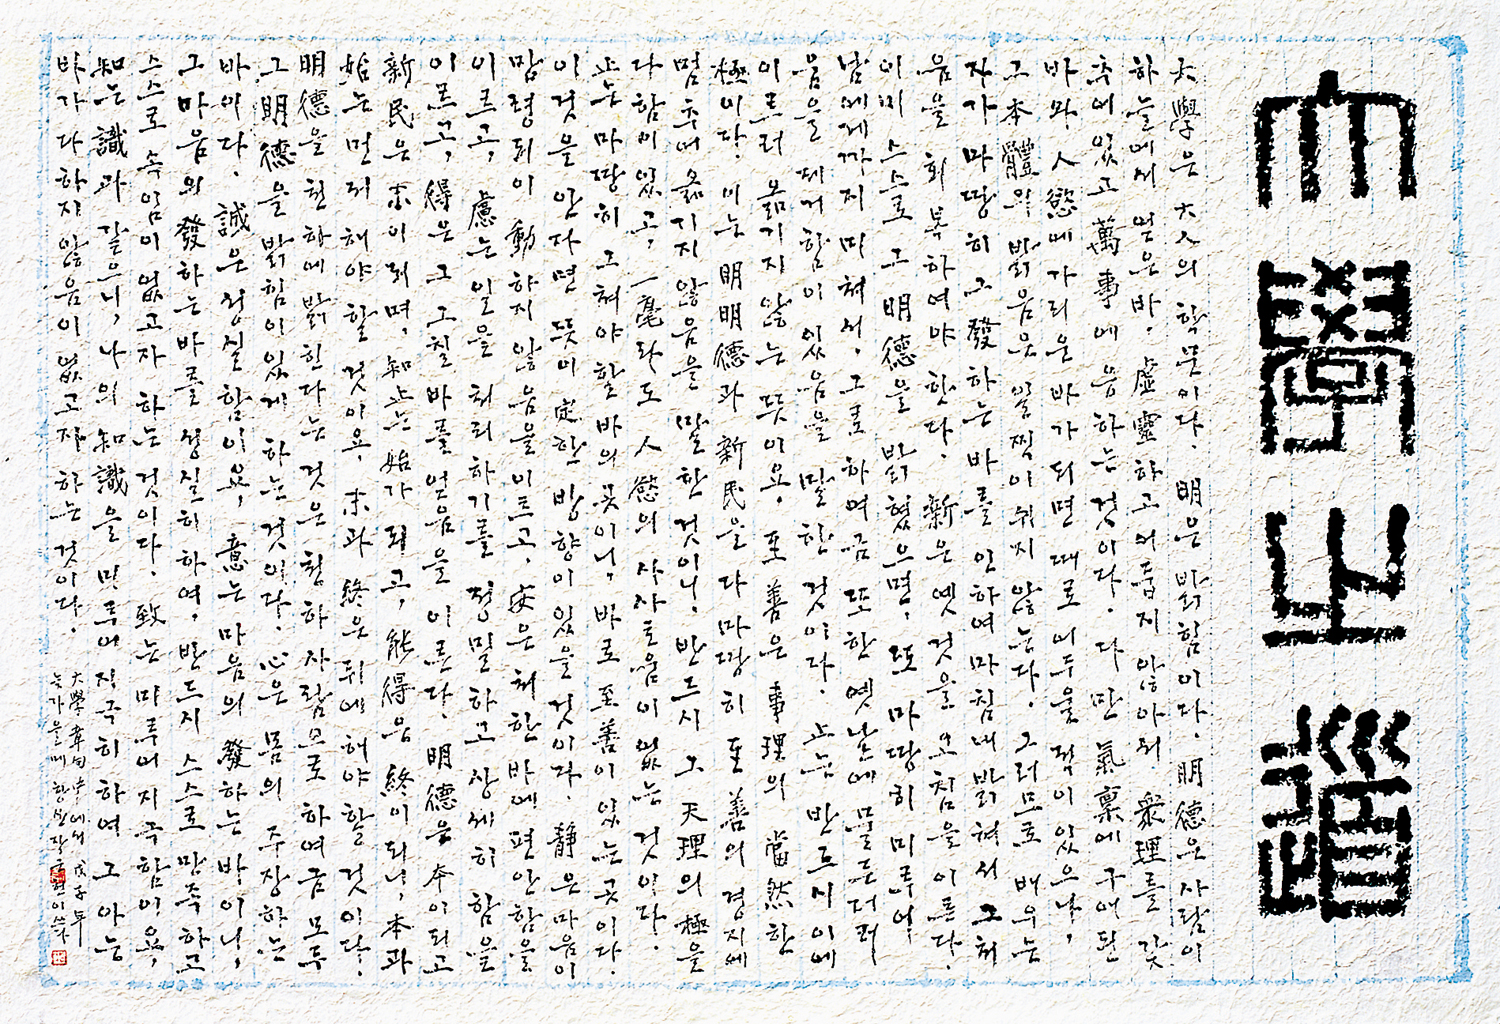 大學之道
大學은 大人의 학문이다. 明은 밝힘이다. 明德은 사람이
하늘에서 얻은 바, 虛靈하고 어둡지 않아서 衆理를 갖
추어 있고 萬事에 응하는 것이다. 다만 氣稟에 구애된
바와 人慾에 가리운 바가 되면 때로 어두울 적이 있으나,
그 本體의 밝음은 일찍이 쉬지 않는다. 그러므로 배우는
자가 마땅히 그 發하는 바를 인하여 마침내 밝혀서 그 처
음을 회복하여야 한다. 新은 옛것을 고침을 이른다.
이미 스스로 그 明德을 밝혔으면, 또 마땅히 미루어
남에게까지 미쳐서, 그로 하여금 또한 옛날에 물든 더러
움을 제거함이 있음을 말한 것이다. 止는 반드시 이에
이르러 옮기지 않는 뜻이요, 至善은 事理의 當然한
極이다. 이는 明明德과 新民을 다 마땅히 至善의 경지에
멈추어 옮기지 않음을 말한 것이니, 반드시 그 天理의 極을
다함이 있고, 一毫라도 人慾의 사사로움이 없는 것이다.
止는 마땅히 그쳐야 할 바의 곳이니, 바로 至善이 있는 곳이다.
이것을 안자면 뜻이 定한 방향이 있을 것이다. 靜은 마음이
망령되이 動하지 않음을 이르고, 安은 처한 바에 편안함을
이르고, 慮는 일을 처리하기를 정밀하고 상세히 함을
이르고, 得은 그 그칠 바를 얻음을 이른다. 明德은 本이 되고
新民은 末이 되며, 知止는 始가 되고, 能得은 終이 되니, 本과
始는 먼저 해야 할 것이요, 末과 終은 뒤에 해야 할 것이다.
明德을 천하에 밝힌다는 것은 천하 사람으로 하여금 모두
그 明德을 밝힘이 있게 하는 것이다. 心은 몸의 주장하는
바이다. 誠은 성실함이요, 意는 마음의 發하는 바이니,
그 마음의 發하는 바를 성실히 하여, 반드시 스스로 만족하고
스스로 속임이 없고자 하는 것이다. 致는 미루어 지극함이요,
知는 識과 같으니, 나의 知識을 미루어 지극히 하여 그 아는
바가 다하지 않음이 없고자 하는 것이다.
大學章句中에서 戊子年
늦가을에